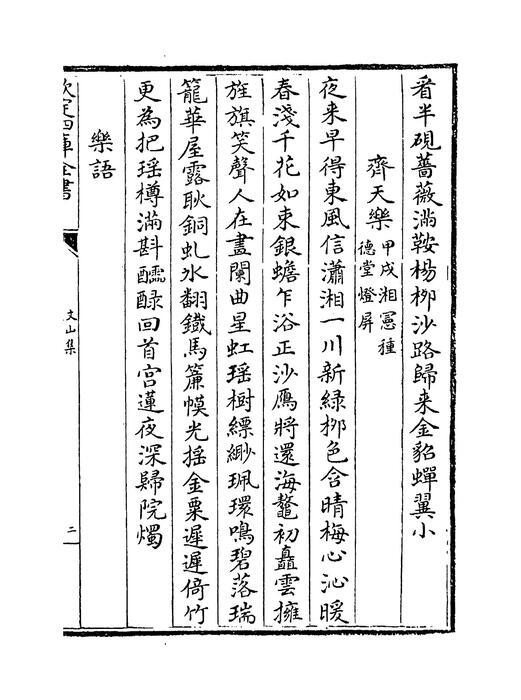 看半硯薔薇滿鞍楊栁沙路歸来金貂蟬翼小
齊天樂甲戌湘憲種德堂燈屏
夜来早得東風信瀟湘一川新綠栁色含晴梅心沁暖
春淺千花如束銀蟾乍浴正沙鴈將還海鼇初矗雲擁
旌旗笑聲人在畫闌曲星虹瑶樹縹緲珮環鳴碧落瑞
籠華屋露耿銅虬氷翻鐵馬簾幙光摇金粟遲遲倚竹
更為把瑶樽滿斟醽醁回首宫蓮夜深歸院燭
樂語
欽定四庫全書
文山集
二